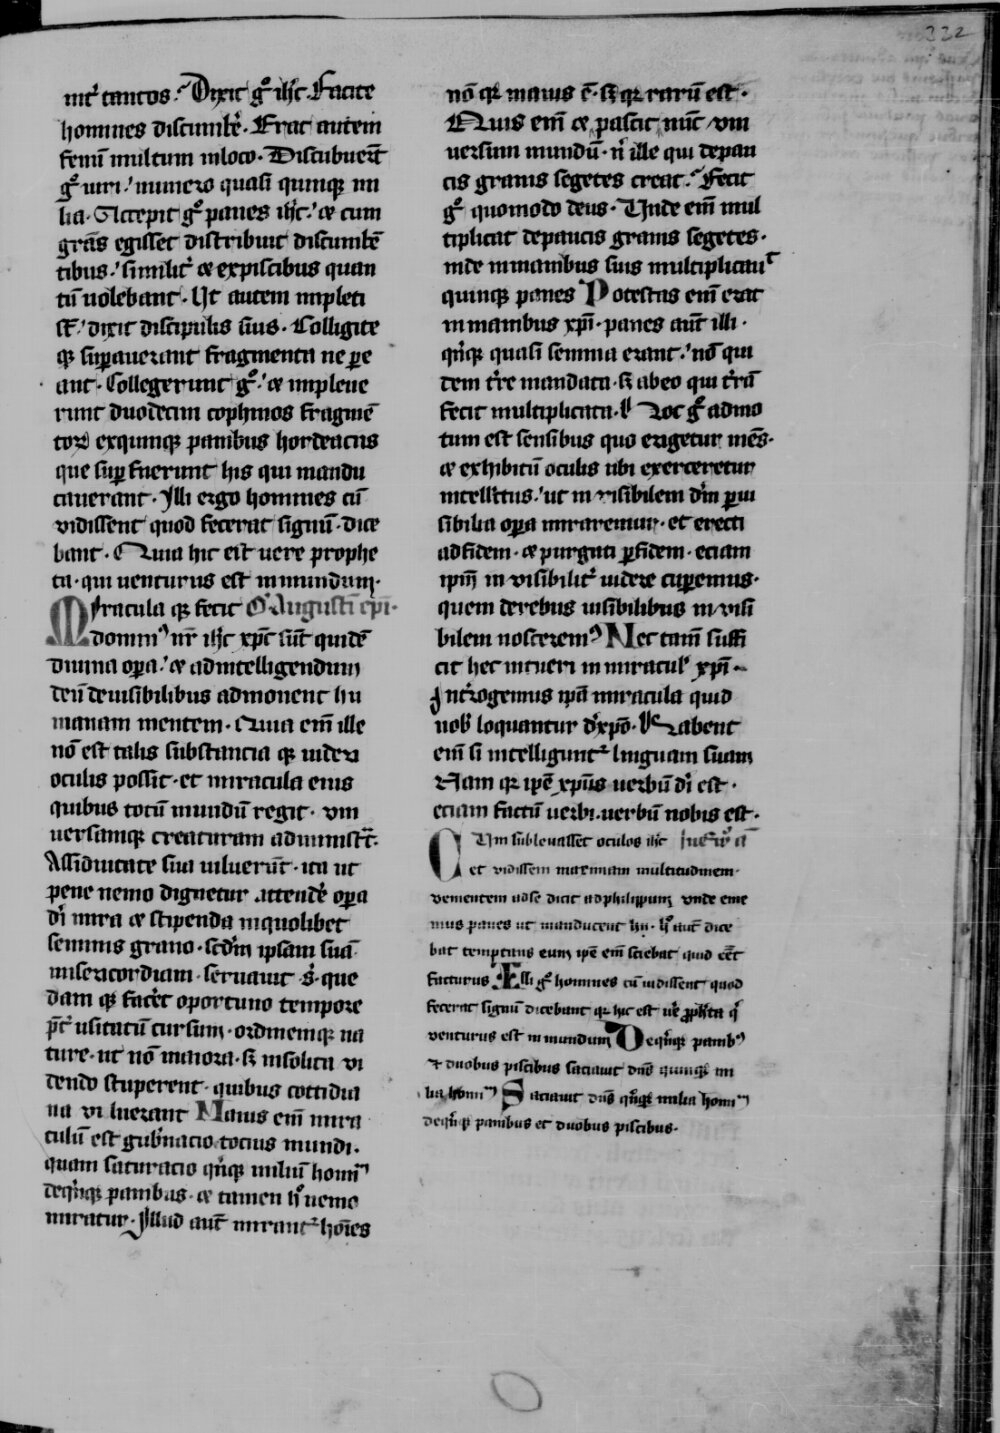 222
int̾ tantos. Dixit gͦ ih̅c. Facite
homines discumbe᷑. Erat autem
fenu̅ multum inloco. Discubueru̅t
gͦ uiri. numero quasi quinq mi
lia. Accepit gͦ panes ih̅c. et cum
gr̅as egisset distribuit discumbe̅
tibus. similit̾ et expiscibus quan
tu̅ uolebant. Ut autem impleti
st̅. dixit discipulis suis. Colligite
q̅ sup̱auerant fragmenta ne pe
ant. Collegerunt gͦ. et impleue
runt duodecim cophinos fragme̅
toꝝ exquinq panibus hordeaciis
que sup̱fuerunt his qui mandu
cauerant. Illi ergo homines cu̅
vidissent quod fecerat signu̅. dice
bant. Quia hic est uere prophe
ta. qui uenturus est inmundum.
Miracula q̅ fecit S. Augustini ep̅i.
dominꝰ nr̅ ih̅c xp̅c su̅t quide̅
diuina op̱a. et adintelligendum
deu̅ deuisibilibus admonent hu
manam mentem. Quia em̅ ille
no̅ est talis substancia q̅ uideri
oculis possit. et miracula eius
quibus totu̅ mundu̅ regit. vni
uersamq creaturam administ̅t.
Assiduitate sua uilueru̅t. ita ut
pene nemo dignetur attende᷑ op̱a
di̅ mira et stipenda inquolibet
seminis grano. scd̅m ipsam sua̅
misericordiam. seruauit s̾. que
dam q̅ face᷑t oportuno tempore
pt̅ usitatu̅ cursum. ordinemq na
ture. ut no̅ maiora. sꝫ insolita vi
dendo stuperent. quibus cottidia
na vi luerant Maius em̅ mira
culu̅ est gub̾nacio tocius mundi.
quam saturacio qi̅nq miliu̅ homi̅
deqi̅nq panibus. et tamen hͦ nemo
miratur. Illud aut̅ mirant̾ ho̅ies
no̅ qꝛ maius e̅. sꝫ qꝛ raru̅ est.
Quis em̅ et pascit nu̅c vni
uersum mundu̅. ni̅ ille qui depau
cis granis segetes creat. Fecit
gͦ quomodo deus. Unde em̅ mul
tiplicat depaucis granis segetes.
inde inmanibus suis multiplicauit
quinq panes Potestas em̅ erat
inmanibus xp̅i. panes aut̅ illi.
qi̅nq quasi semina erant. no̅ qui
dem t̾re mandata. sꝫ abeo qui t̾ra̅
fecit multiplicata. Hoc gͦ admo
tum est sensibus quo erigetur me̅s.
et exhibitu̅ oculis ubi exerceretur
intell̅tus. ut inuisibilem dm̅ p̱ui
sibilia op̱a miraremur. et erecti
adfidem. et purgati p̱fidem. eciam
ipm̅ in visibilit̾ uidere cup̱emus.
quem derebus uisibilibus inuisi
bilem nosceremꝰ Nec tam̅ suffi
cit hec intueri in miracul̾ xp̅i
Int̾rogemus ip̅a miracula quid
nob̾ loquantur dexp̅o. Habent
em̅ si intelligunt̾ linguam suam
Nam qꝛ ip̅e xp̅us uerbu̅ di̅ est.
eciam factu̅ uerbi. uerbu̅ nobis est.
Cum subleuasset oculos ih̅c
et vidissem maximam multitudinem.
venientem adse dicit adphilippum vnde eme
mus panes ut manducent hii. hͦ aut̅ dice
bat temptans eum ip̅e em̅ sciebat quid e̅et
facturus Illi gͦ homines cu̅ uidissent quod
fecerat signu̅ dicebant qꝛ hic est ue᷑ p̱ph̅ta qi̅
venturus est inmundum Deqi̅nq panibꝰ
et duobus piscibus saciauit dn̅s quinq mi
lia homi̅ Saciauit dn̅s qi̅nq milia homi̅
deqi̅nq panibus et duobus piscibus.